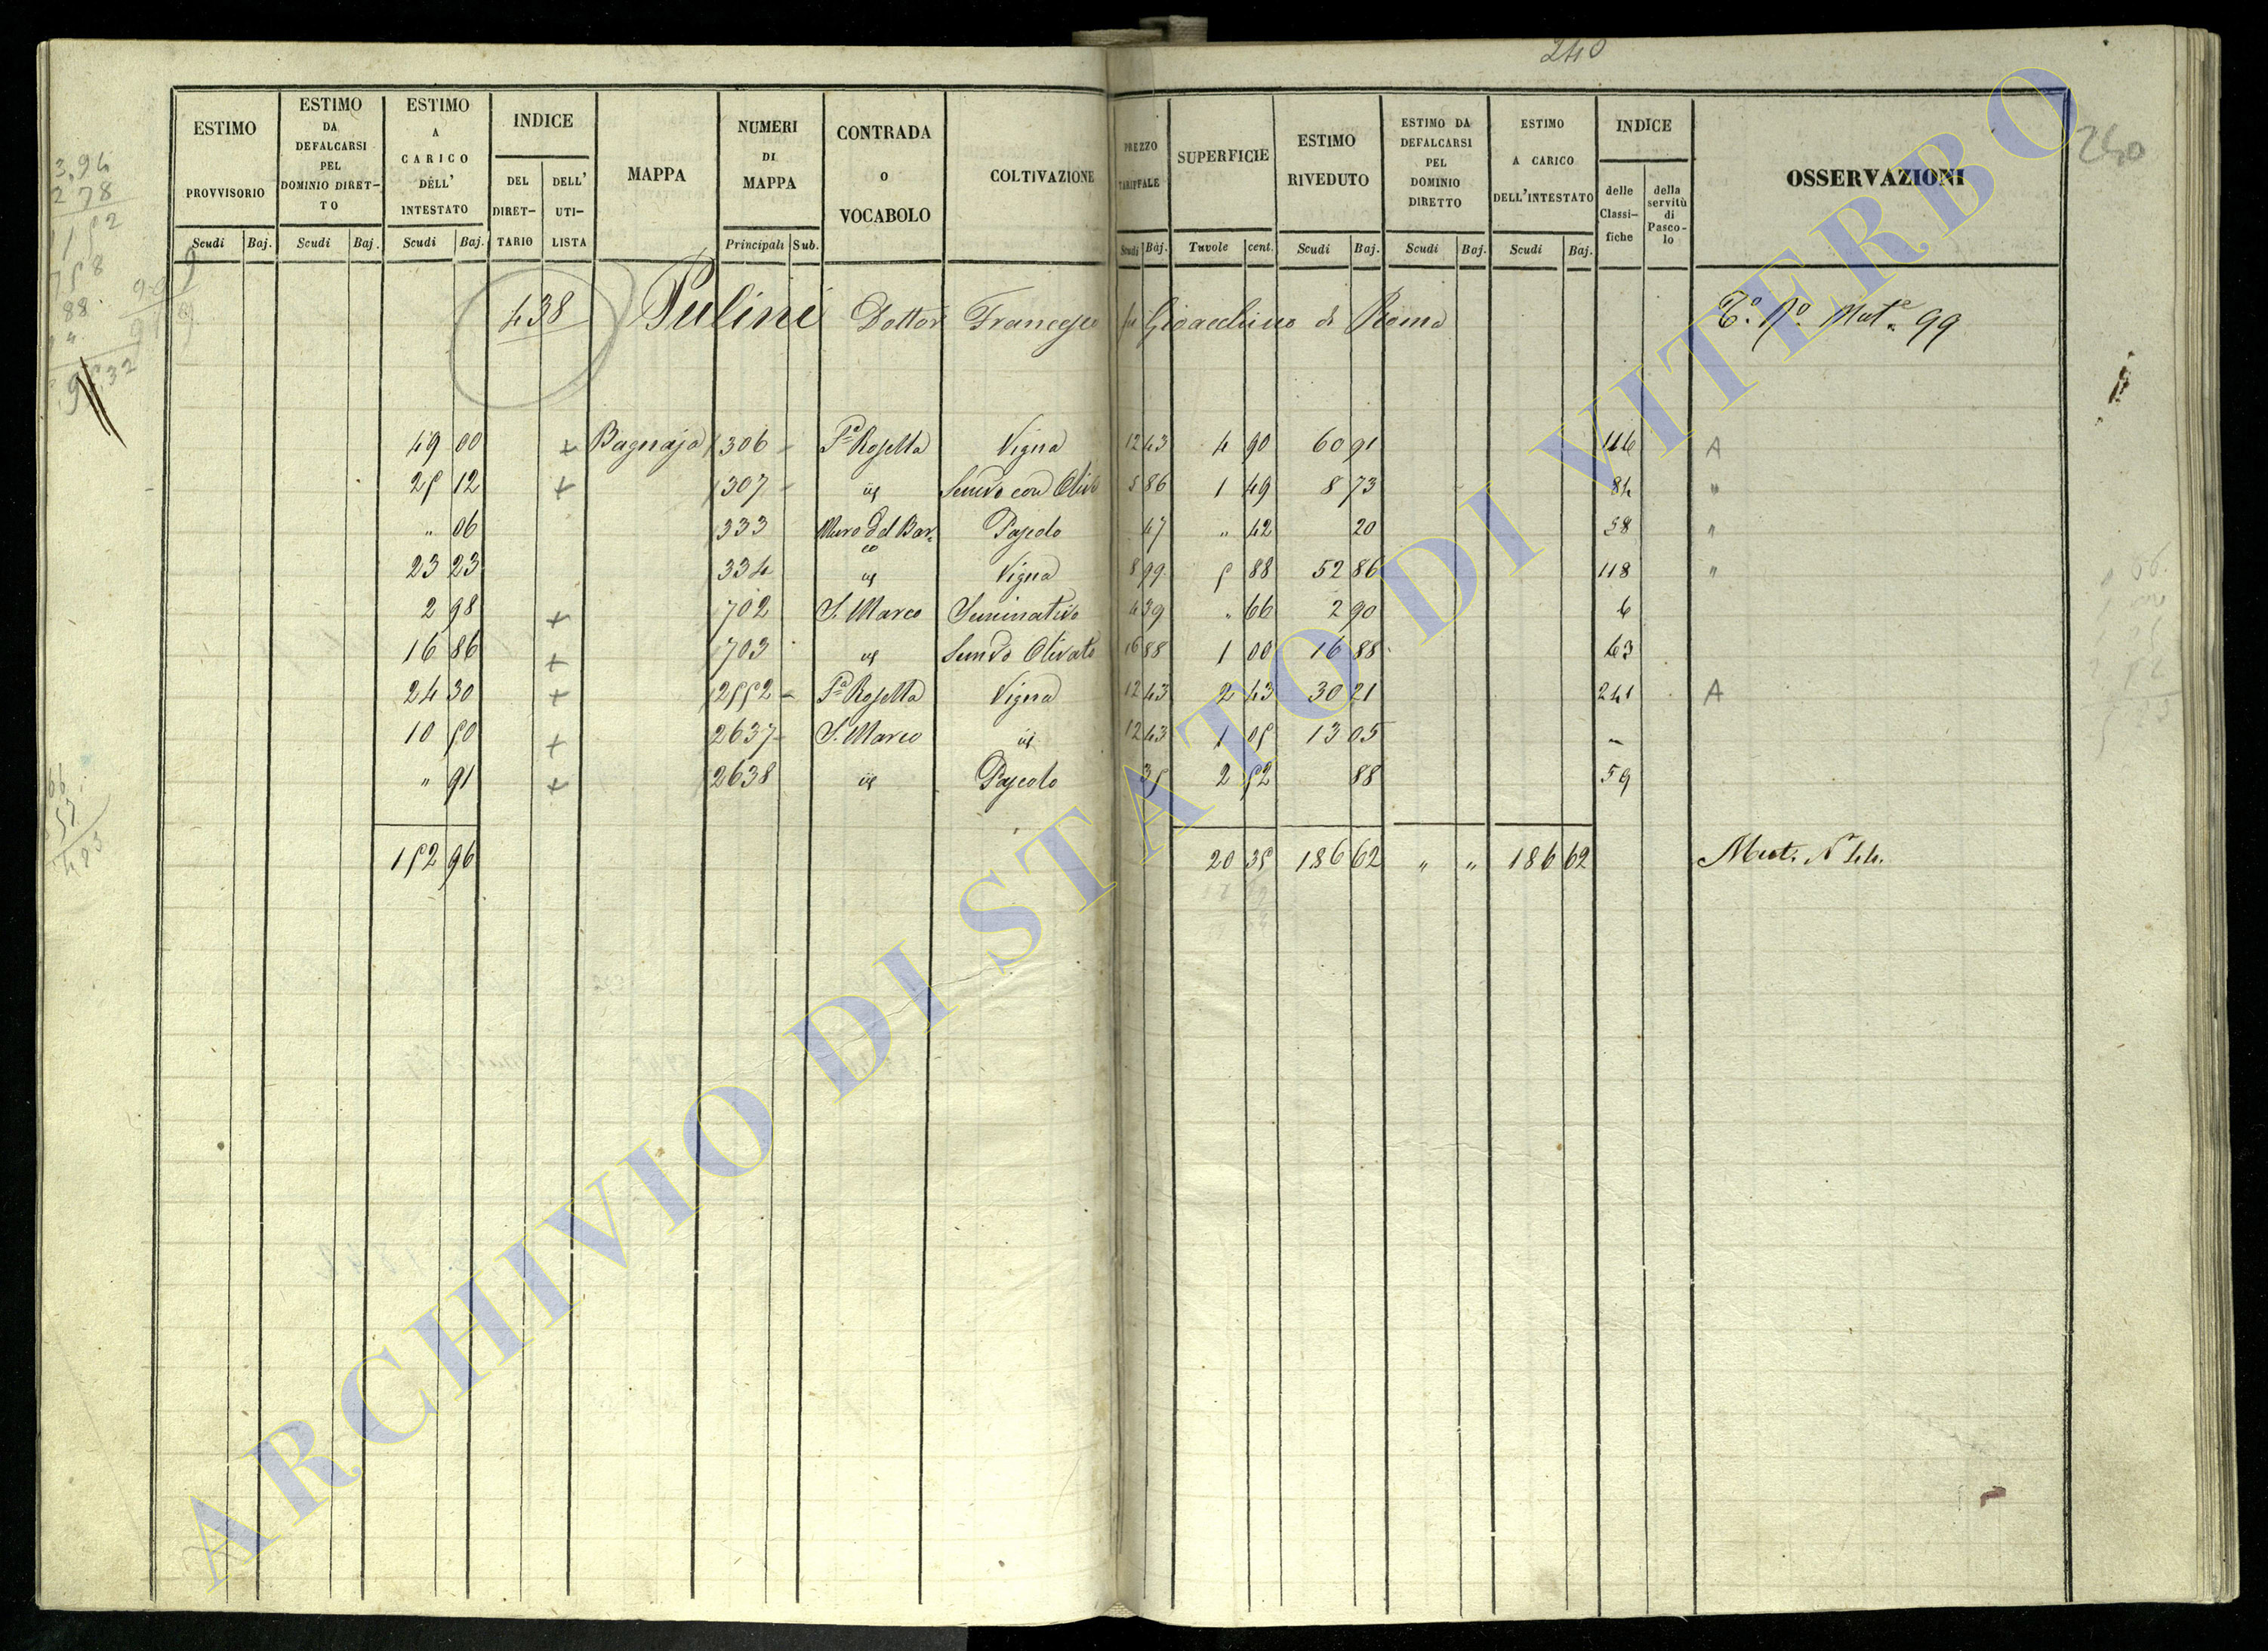 240
240
ESTIMO PROVVISORIO Scudi Baj.
ESTIMO DA DEFALCARSI PEL DOMINIO DIRETTO Scudi Baj.
ESTIMO A CARICO DELL' INTESTATO Scudi Baj.
INDICE DEL DIRETTARIO DELL' UTILISTA
MAPPA
NUMERI DI MAPPA Principali Sub.
CONTRADA O VOCABOLO
COLTIVAZIONE
PREZZO TARIFFALE Scudi Baj.
SUPERFICIE Tavole cent.
ESTIMO RIVEDUTO Scudi Baj.
ESTIMO DA DEFALCARSI PEL DOMINIO DIRETTO Scudi Baj.
ESTIMO A CARICO DELL'INTESTATO Scudi Baj.
INDICE delle Classifiche della servitù di Pascolo
OSSERVAZIONI
438 Pulini Dottor Francesco fu Gioacchino di Roma Mut.e 99
49 00 + Bagnaja 1306 Pa Rosetta Vigna 12 43 4 90 60 91 116 A
25 12 + 1307 id Semvo con Olivi 5 86 1 49 8 73 84 "
" 06 1333 Muro del Barco Pascolo 47 " 42 20 58 "
23 23 1334 id Vigna 8 99 5 88 52 86 118 "
2 98 + 1702 S. Marco Seminativo 4 39 " 66 2 90 6
16 86 + 1703 id Semvo Olivato 16 88 1 00 16 88 63
24 30 + 2552 Pa Rosetta Vigna 12 43 2 43 30 21 241 A
10 50 + 2637 S. Marco id 12 43 1 05 13 05 -
" 91 + 2638 id Pascolo 35 2 52 88 59
152 96 20 35 186 62 " " 186 62 Mut. N 44.
3,94
2 78
ARCHIVIO DI STATO DI VITERBO